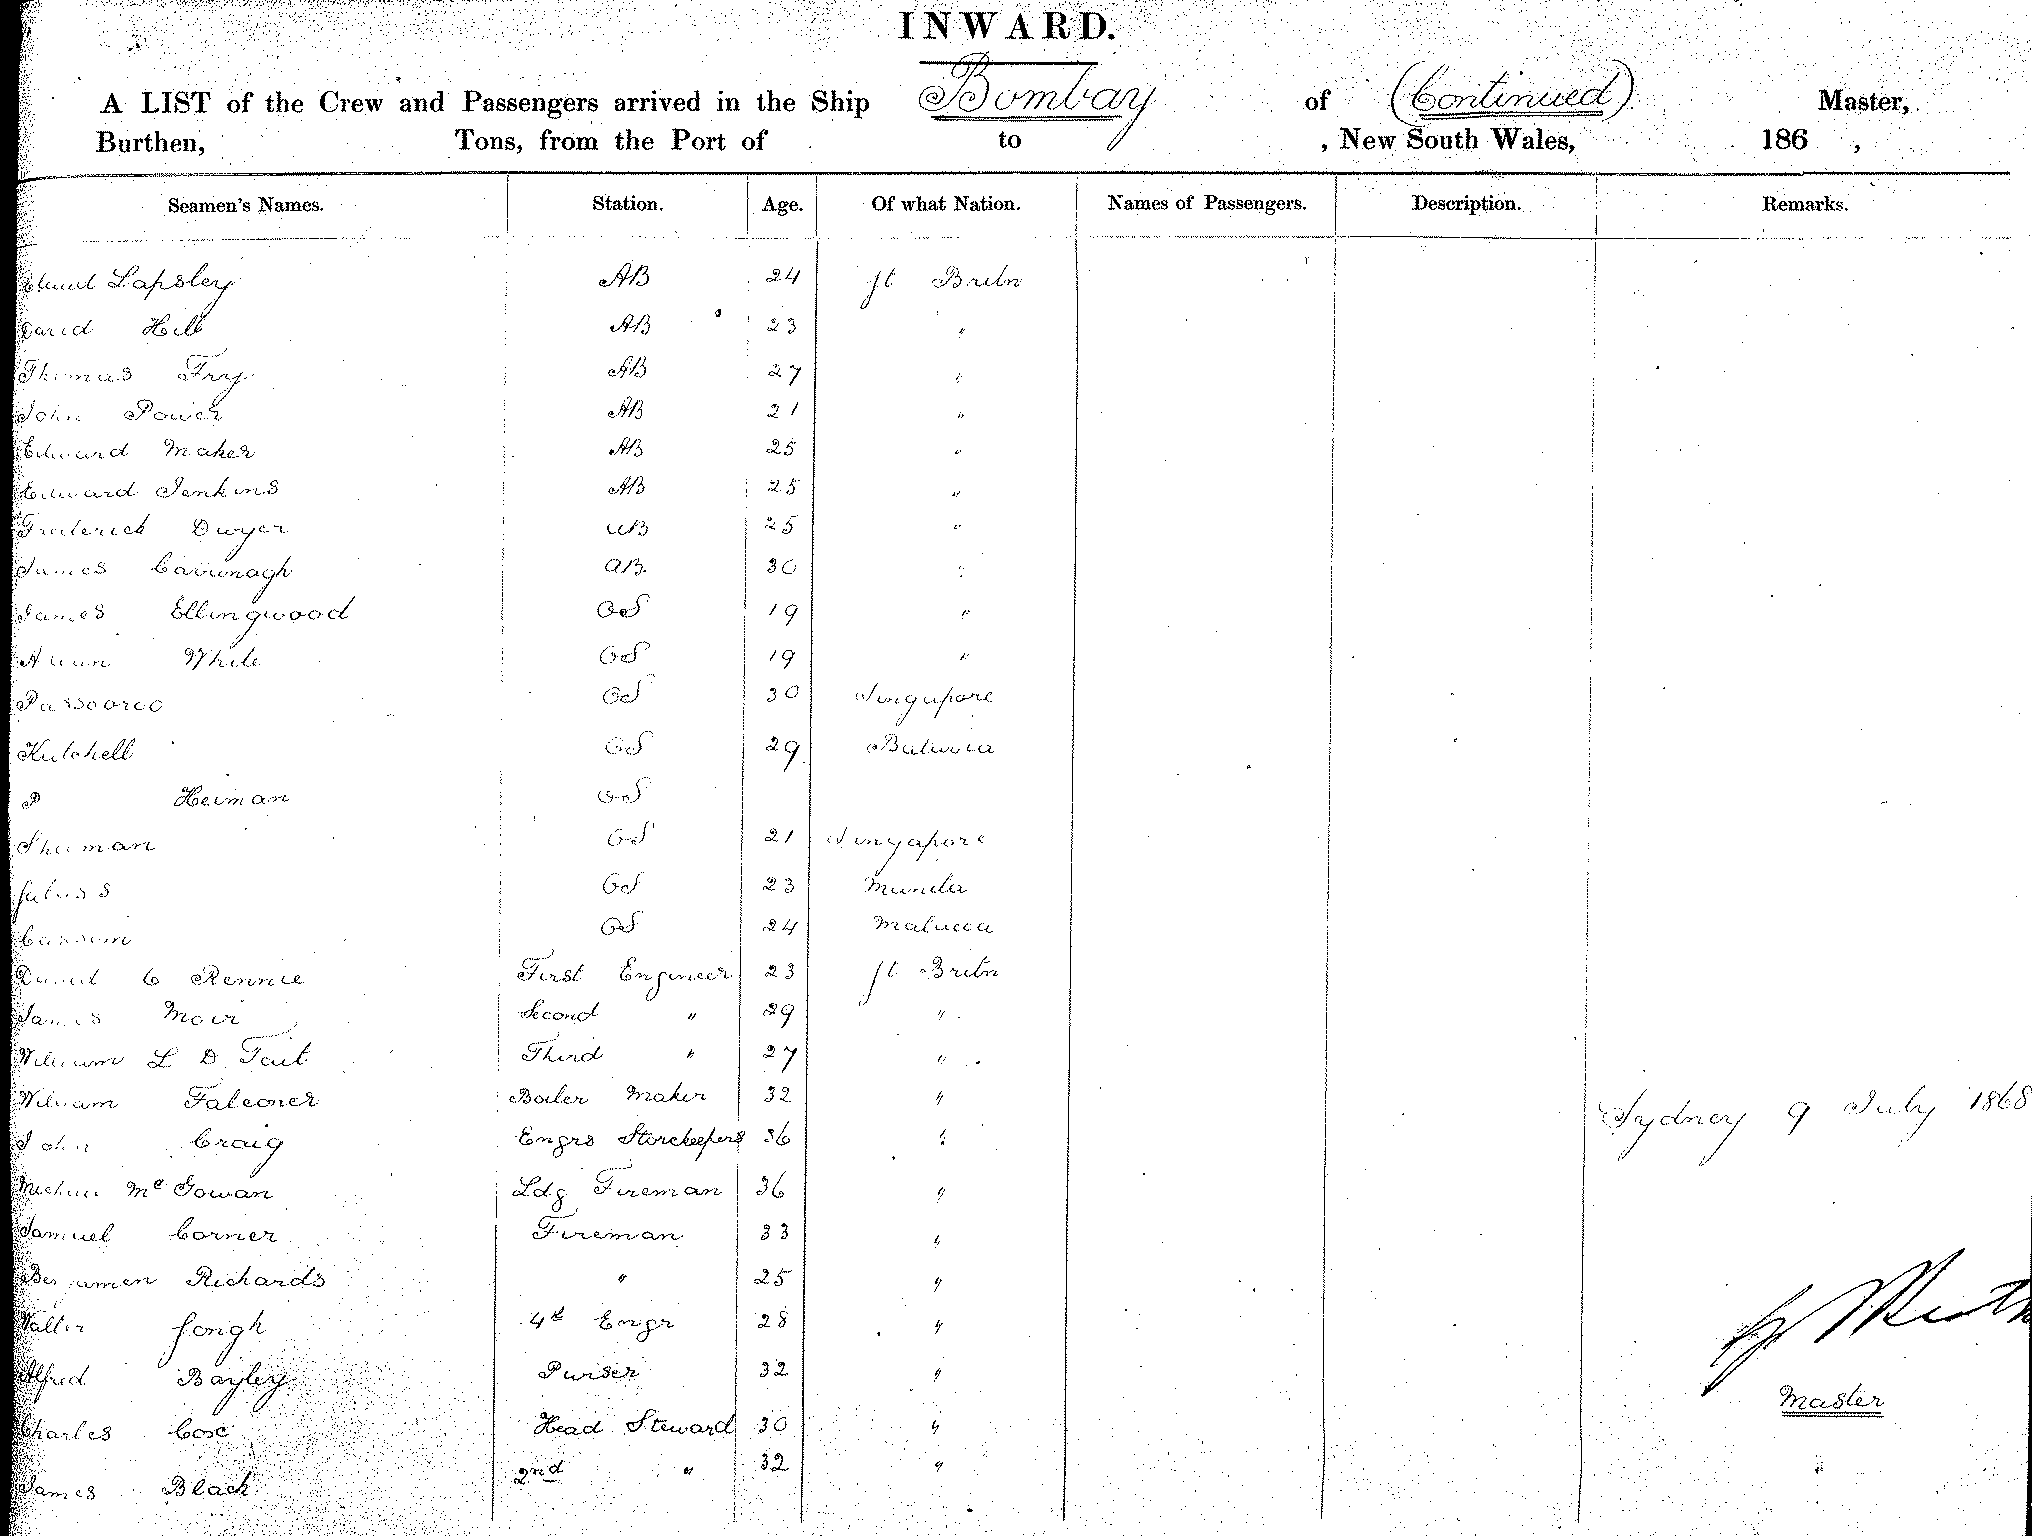 INWARD.
A LIST of the Crew and Passengers arrived in the Ship Bombay of (Continued) Master,
Burthen, Tons, from the Port of to , New South Wales, 186 ,
Seamen's Names. Station. Age. Of what Nation. Names of Passengers. Description. Remarks.
Lapsley AB 24 Gt Britn
David Hill AB 23 "
Thomas Fry AB 27 "
John Power AB 21 "
Edward Maher AB 25 "
Edward Jenkins AB 25 "
Frederick Dwyer AB 25 "
James Cavanagh AB. 30 "
James Ellingwood OS 19 "
White OS 19 "
OS 30 Singapore
Kutchell OS 29 Batavia
P Heiman OS
OS 21 Singapore
OS 23 Manila
Cassim OS 24 Malacca
David C Rennie First Engineer 23 Gt Britn
James Moir Second " 29 "
William L D Tait Third " 27 "
William Falconer Boiler Maker 32 "
Sydney 9 July 1868
John Craig Engrs Storekeepers 36 "
McGowan Ldg Fireman 36 "
Samuel Corner Fireman 33 "
Benjamen Richards " 25 "
Walter Gough 4th Engr 28 "
Alfred Bayley Purser 32 "
Master
Charles Cox Head Steward 30 "
James Black 2nd " 32 "